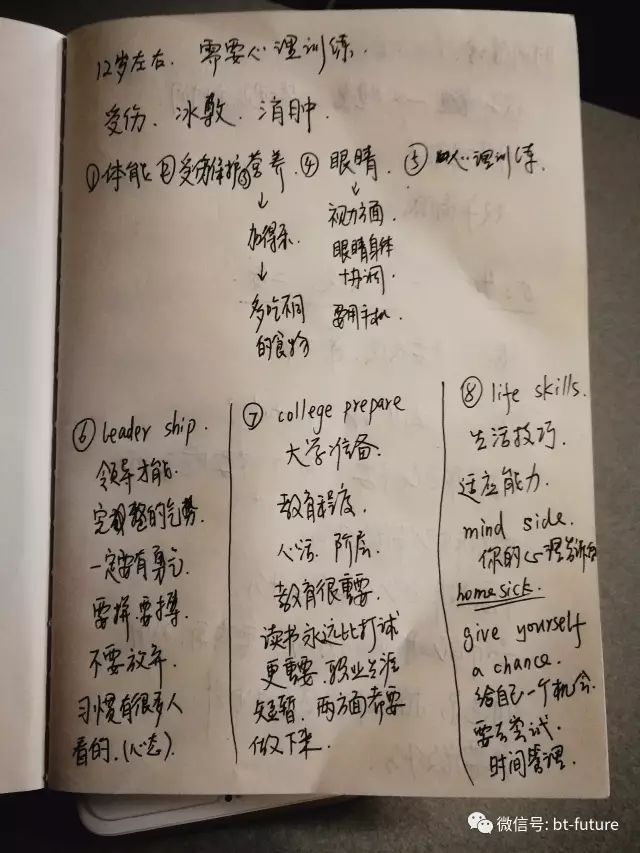 12岁左右. 需要心理训练.
受伤. 冰敷. 消肿.
①体能 ②受伤保护 ③营养. ④ 眼睛. ⑤ 心理训练.
↓
加得乐.
↓
多吃不同
的食物
↓
视力方面.
眼睛身体
协调.
要用手机.
⑥ leader ship.
领导才能.
完整的气势.
一定要有勇气.
要拼. 要搏.
不要放弃.
习惯有很多人
看的. (心态).
⑦ college prepare
大学准备.
教育程度.
心态. 阶层.
教育很重要.
读书永远比打球
更重要. 职业生涯
短暂. 两方面都要
做下来.
⑧ life skills.
生活技巧.
适应能力.
mind side.
你的心理
homesick.
give yourself
a chance.
给自己一个机会.
要去尝试.
时间管理.
微信号: bt-future